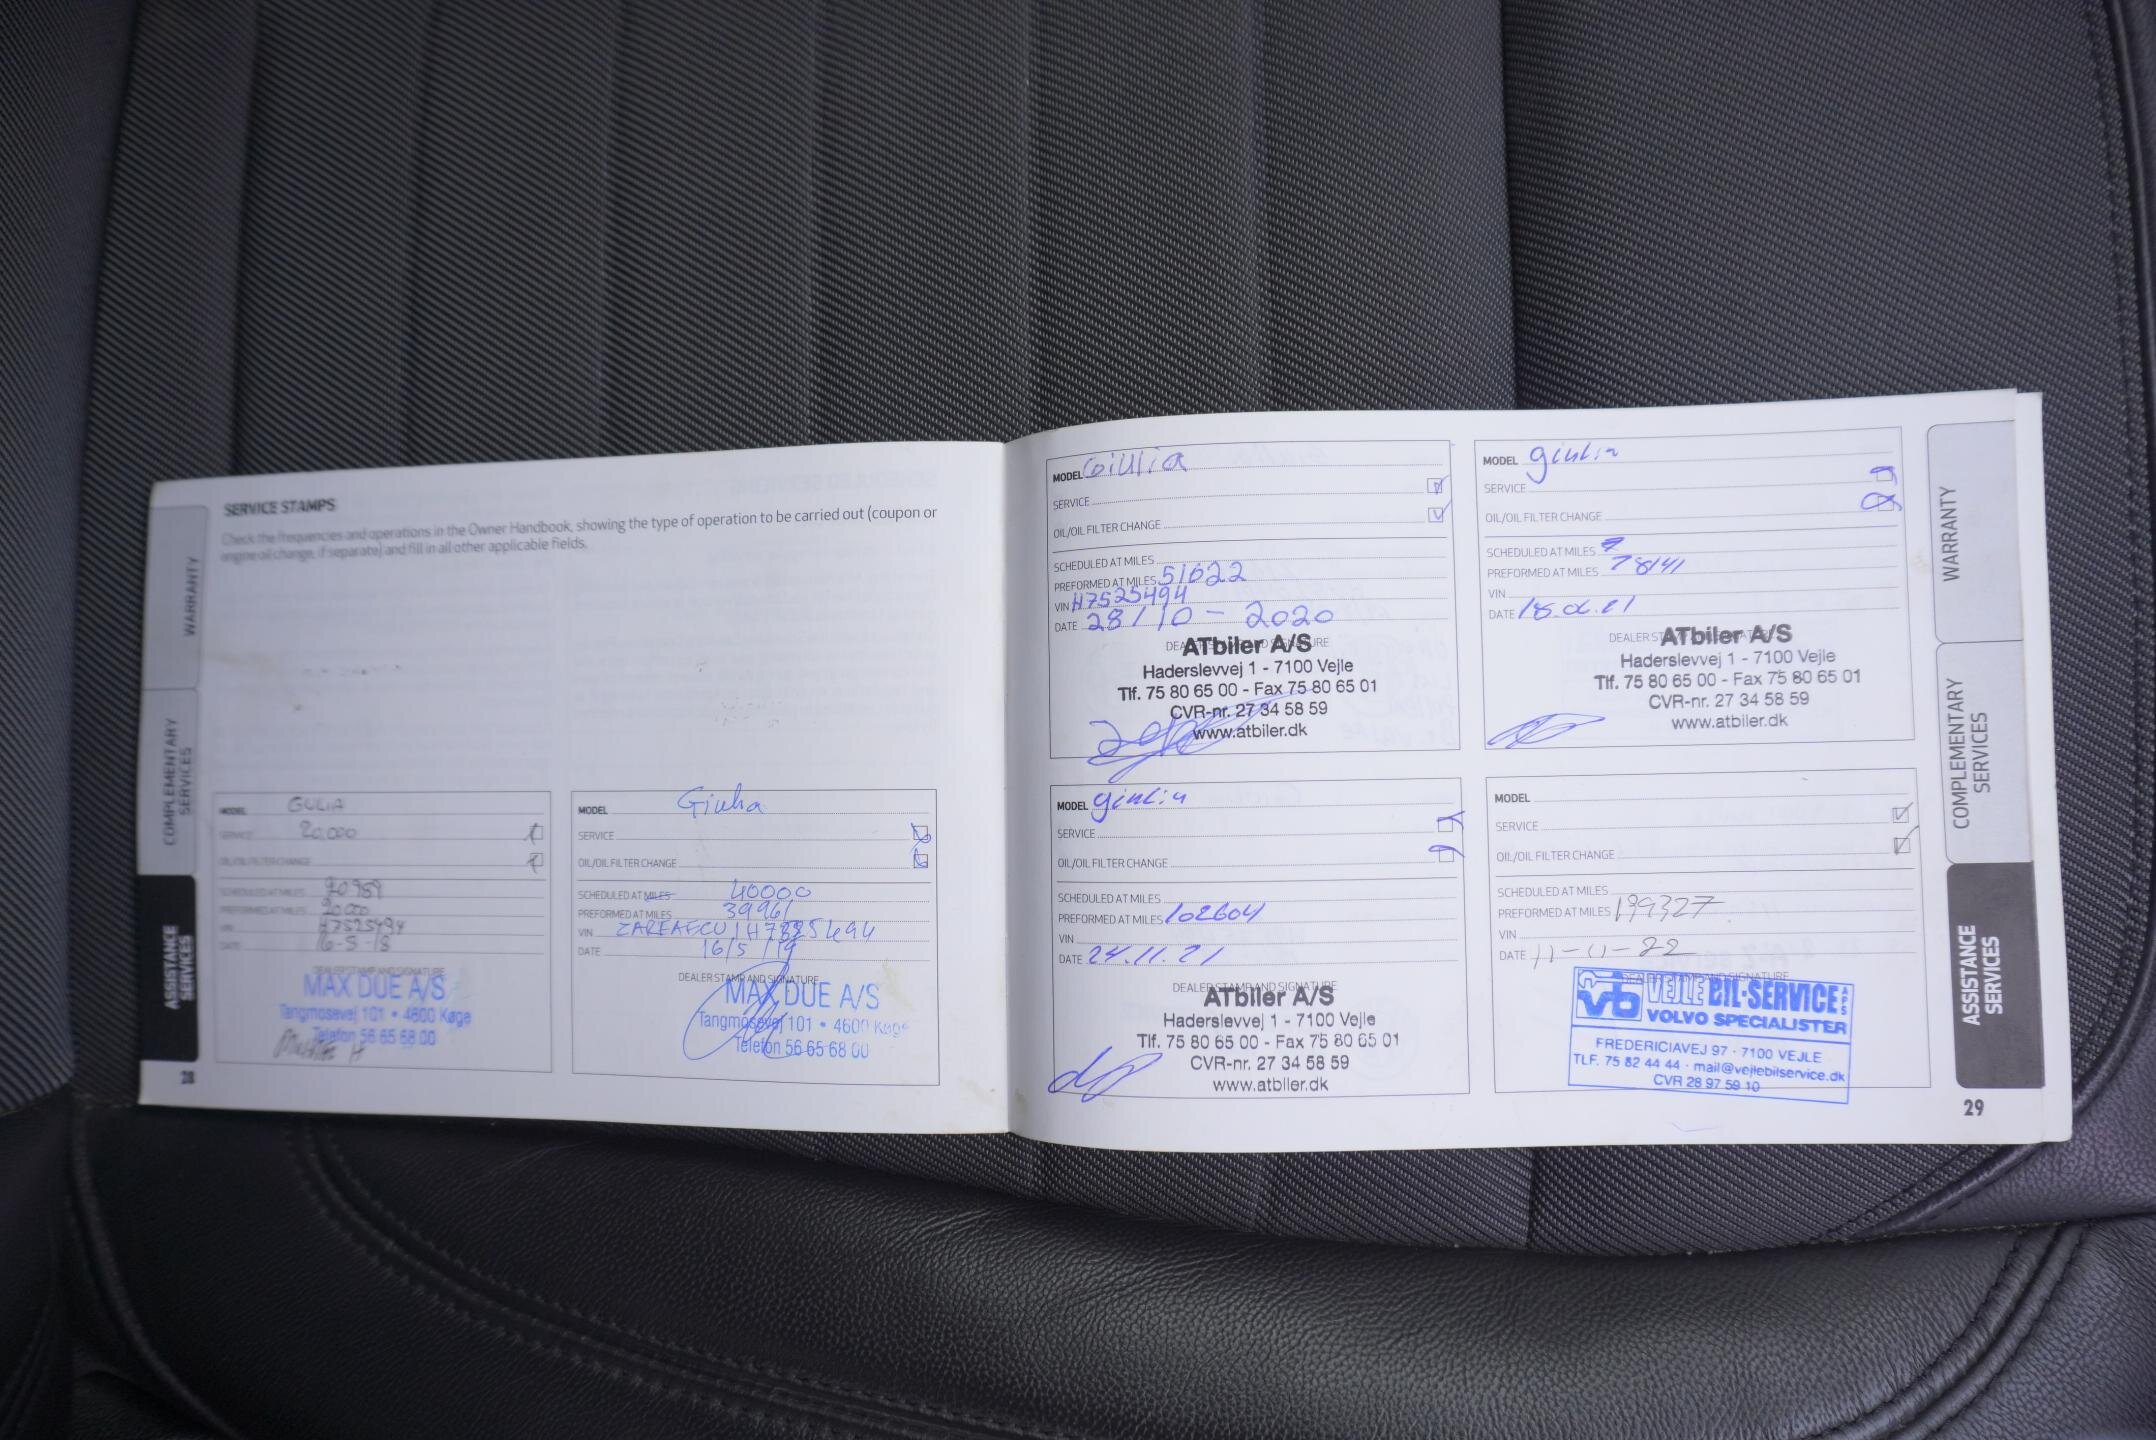 SERVICE STAMPS
Check the frequencies and operations in the Owner Handbook, showing the type of operation to be carried out (coupon or
engine oil change, if separate) and fill in all other applicable fields.
WARRANTY
COMPLEMENTARY
SERVICES
ASSISTANCE
SERVICES
MODEL GULIA
SERVICE 20.000
OIL/OIL FILTER CHANGE
SCHEDULED AT MILES
PREFORMED AT MILES 20.000
VIN H7525494
DATE 16-5-18
DEALER STAMP AND SIGNATURE
MAX DUE A/S
Tangmosevej 101 • 4600 Køge
Telefon 56 65 68 00
28
MODEL Giulia
SERVICE
OIL/OIL FILTER CHANGE
SCHEDULED AT MILES 40000
PREFORMED AT MILES 39961
VIN
DATE 16/5/19
DEALER STAMP AND SIGNATURE
MAX DUE A/S
Tangmosevej 101 • 4600 Køge
Telefon 56 65 68 00
MODEL Giulia
SERVICE
OIL/OIL FILTER CHANGE
SCHEDULED AT MILES
PREFORMED AT MILES 51622
VIN H7525494
DATE 28/10-2020
DEALER STAMP AND SIGNATURE
ATbiler A/S
Haderslevvej 1 - 7100 Vejle
Tlf. 75 80 65 00 - Fax 75 80 65 01
CVR-nr. 27 34 58 59
www.atbiler.dk
MODEL giulia
SERVICE
OIL/OIL FILTER CHANGE
SCHEDULED AT MILES
PREFORMED AT MILES 78141
VIN
DATE
DEALER STAMP AND SIGNATURE
ATbiler A/S
Haderslevvej 1 - 7100 Vejle
Tlf. 75 80 65 00 - Fax 75 80 65 01
CVR-nr. 27 34 58 59
www.atbiler.dk
MODEL giulia
SERVICE
OIL/OIL FILTER CHANGE
SCHEDULED AT MILES
PREFORMED AT MILES 102604
VIN
DATE 24.11.21
DEALER STAMP AND SIGNATURE
ATbiler A/S
Haderslevvej 1 - 7100 Vejle
Tlf. 75 80 65 00 - Fax 75 80 65 01
CVR-nr. 27 34 58 59
www.atbiler.dk
MODEL
SERVICE
OIL/OIL FILTER CHANGE
SCHEDULED AT MILES
PREFORMED AT MILES 139327
VIN
DATE 11-11-22
DEALER STAMP AND SIGNATURE
vb VEJLE BIL·SERVICE APS
VOLVO SPECIALISTER
FREDERICIAVEJ 97 · 7100 VEJLE
TLF. 75 82 44 44 · mail@vejlebilservice.dk
CVR 28 97 59 10
WARRANTY
COMPLEMENTARY
SERVICES
ASSISTANCE
SERVICES
29